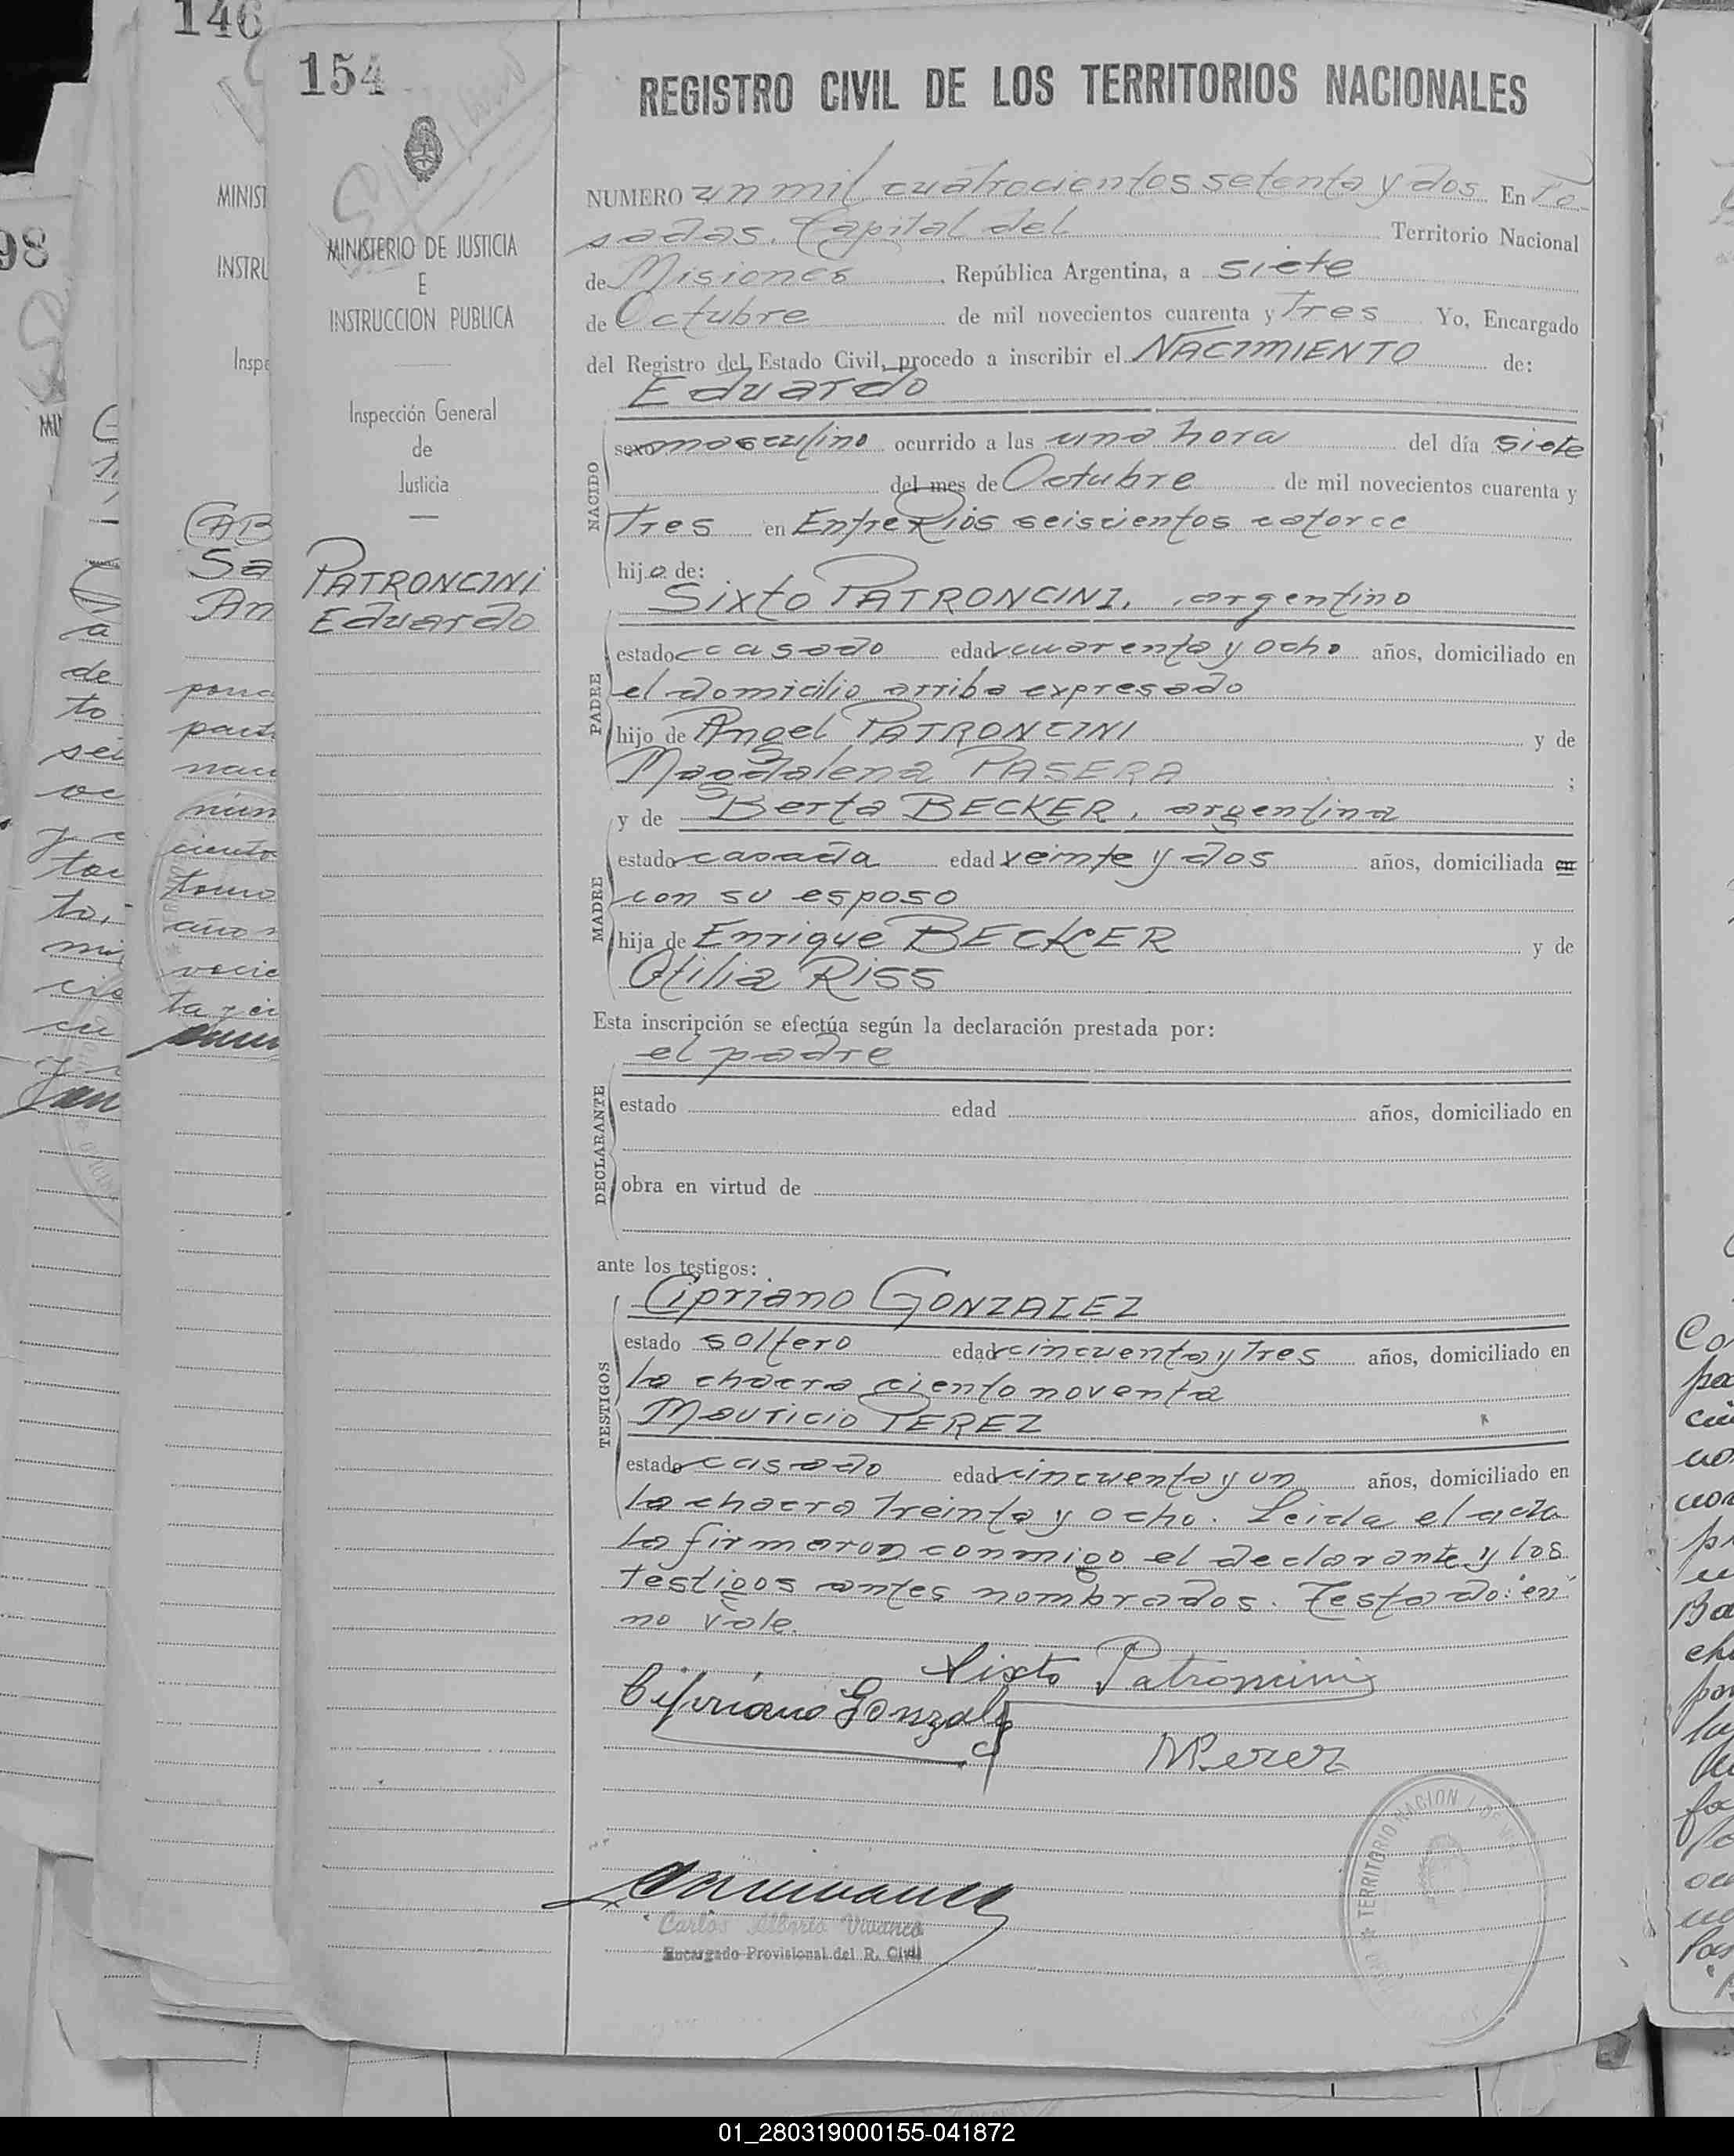 146
154
98
REGISTRO CIVIL DE LOS TERRITORIOS NACIONALES
MINISTERIO DE JUSTICIA
E
INSTRUCCION PUBLICA
Inspección General
de
Justicia
PATRONCINI
Eduardo
NUMERO un mil cuatrocientos setenta y dos En Po-
sadas, Capital del Territorio Nacional
de Misiones, República Argentina, a siete
de Octubre de mil novecientos cuarenta y Tres Yo, Encargado
del Registro del Estado Civil, procedo a inscribir el NACIMIENTO de:
Eduardo
NACIDO
sexo masculino ocurrido a las una hora del día siete
del mes de Octubre de mil novecientos cuarenta y
Tres en Entre Rios seiscientos catorce
hijo de:
Sixto PATRONCINI, argentino
PADRE
estado casado edad cuarenta y ocho años, domiciliado en
el domicilio arriba expresado
hijo de Angel PATRONCINI y de
Magdalena PASERA ;
y de Berta BECKER, argentina
MADRE
estado casada edad veinte y dos años, domiciliada en
con su esposo
hija de Enrique BECKER y de
Otilia RISS
Esta inscripción se efectúa según la declaración prestada por:
el padre
DECLARANTE
estado edad años, domiciliado en
obra en virtud de
ante los testigos:
Cipriano GONZALEZ
TESTIGOS
estado soltero edad cincuenta y Tres años, domiciliado en
la chacra ciento noventa
Mauricio PEREZ
estado casado edad cincuenta y un años, domiciliado en
la chacra Treinta y ocho. Leida el acta
la firmaron conmigo el declarante y los
Testigos antes nombrados. Testado: "en"
no vale.
Sixto Patroncini
Cipriano Gonzalez
MPerez
Carlos Alberto Vivanco
Encargado Provisional del R. Civil
TERRITORIO NACIONAL DE
01_280319000155-041872